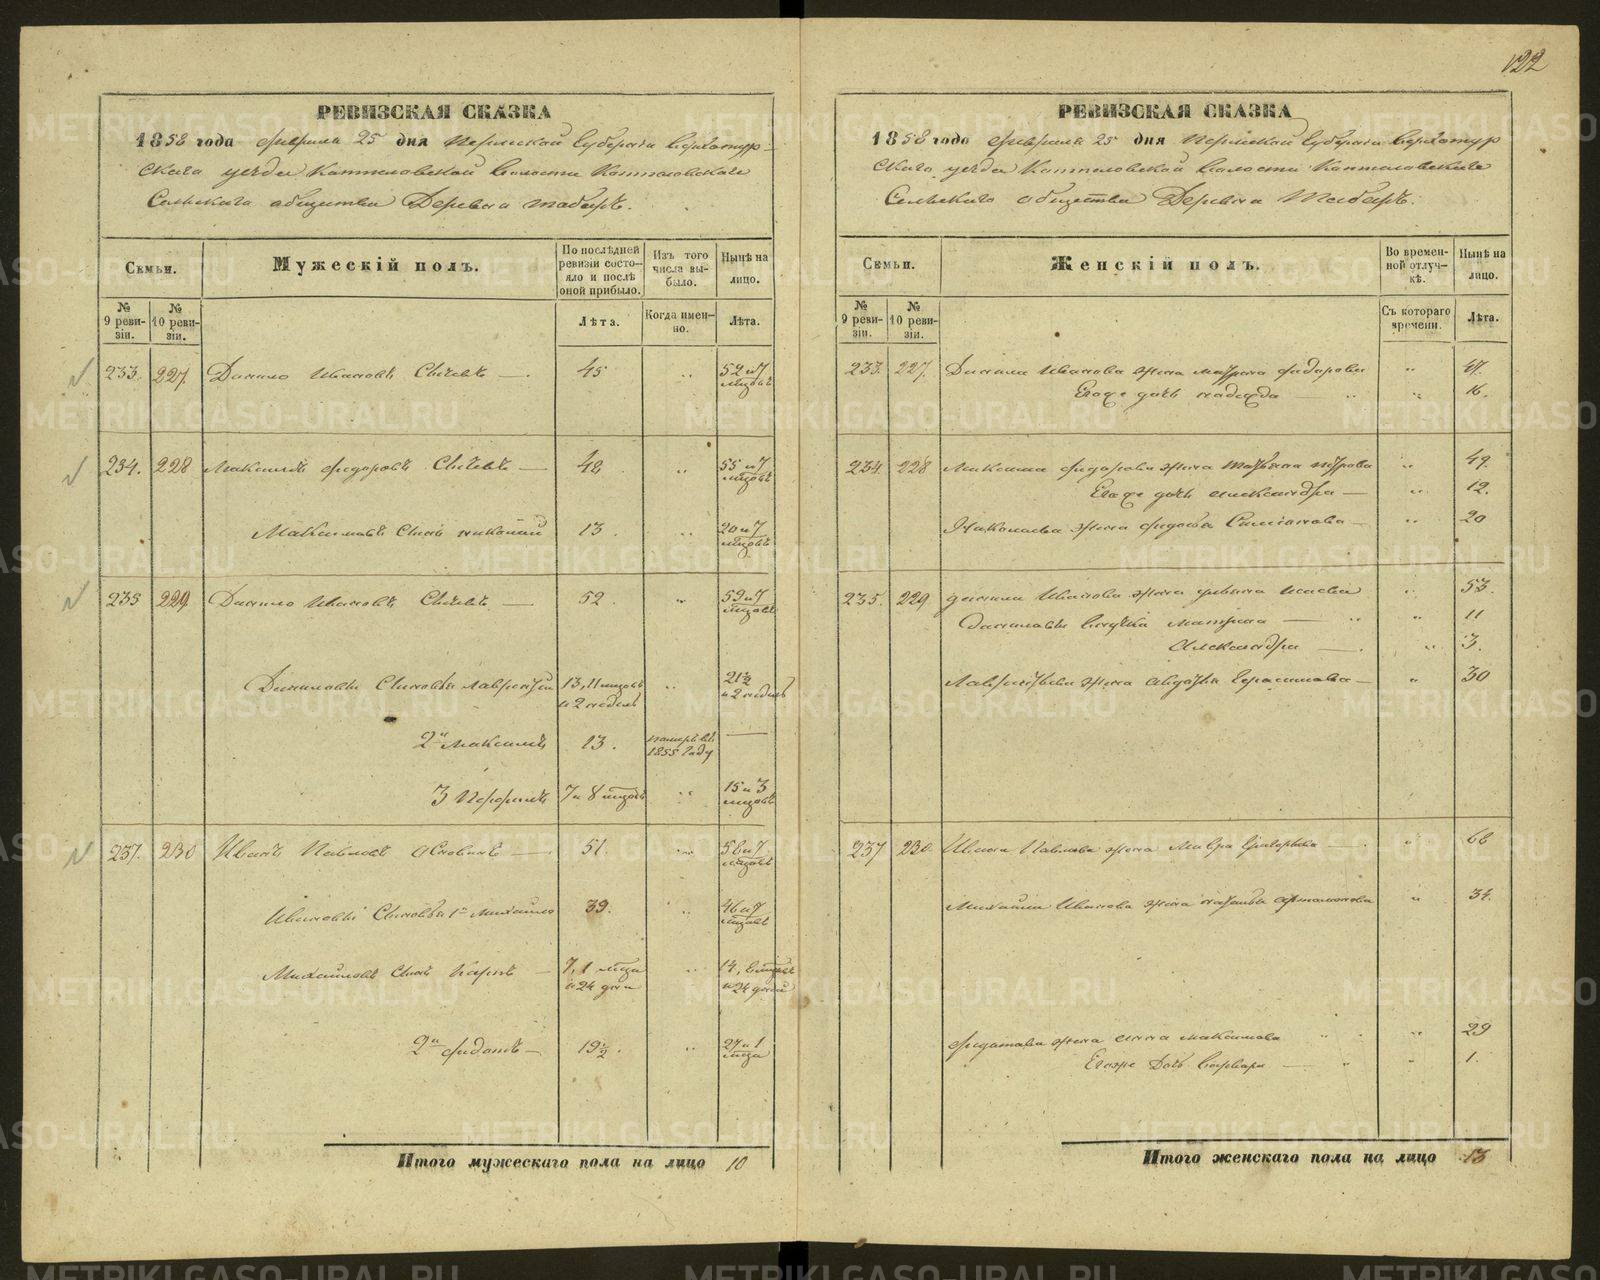 122
РЕВИЗСКАЯ СКАЗКА
1858 года февраля 25 дня Пермской Губернiи Верхотур-
скаго уезда Коптеловской волости Коптеловскаго
Сельскаго общества Деревня Таборъ.
Семьи.
Мужескiй полъ.
По послѣдней ревизiи состояло и послѣ оной прибыло.
Изъ того числа выбыло.
Нынѣ на лицо.
№ 9 ревизiи.
№ 10 ревизiи.
Лѣта.
Когда именно.
Лѣта.
233. 227. Данило Ивановъ Сычевъ — 45 „ 52 и 7 мѣсяцовъ
234. 228 Максимъ Федоровъ Сычевъ — 48 „ 55 и 7 мѣсяцовъ
Максимовъ Сынъ Николай 13 „ 20 и 7 мѣсяцовъ
235 229 Данило Ивановъ Сычевъ — 52 „ 59 и 7 мѣсяцовъ
Даниловы Сыновья Лаврентiй 13, 11 мѣсяцовъ и 2 недѣли „ 21½ и 2 недѣли
2й Максимъ 13. померъ въ 1855 году —
3 Порфилъ 7 и 8 мѣсяцовъ „ 15 и 3 мѣсяцовъ
237. 230 Иванъ Павловъ — 51. „ 58 и 7 мѣсяцовъ
Ивановы Сыновья 1й Михайло 39. „ 46 и 7 мѣсяцовъ
Михайловъ Сынъ Карпъ — 7, 1 мѣсяца и 24 дни „ 14, 8 мѣсяцевъ и 24 дней
2й Федотъ — 19½. „ 27 и 1 мѣсяца
Итого мужескаго пола на лицо 10
РЕВИЗСКАЯ СКАЗКА
1858 года февраля 25 дня Пермской Губернiи Верхотур
скаго уезда Коптеловской волости Коптеловскаго
Сельскаго общества Деревня Таборъ.
Семьи.
Женскiй полъ.
Во временной отлучкѣ.
Нынѣ на лицо.
№ 9 ревизiи.
№ 10 ревизiи.
Съ котораго времени.
Лѣта.
233. 227. Данила Иванова жена Матрена Федорова „ 47.
Ево же дочь Надежда — „ 16.
234. 228 Максима Федорова жена Татьяна Петрова „ 49.
Ево же дочь Александра — „ 12.
Николаева жена Федосья Силиванова — „ 20
235. 229 Данила Иванова жена Ульяна Исаева „ 53.
Даниловы внучка Матрена — „ 11
Александра — „ 3.
Лаврентьева жена Авдотья Герасимова — „ 30
237 230. Ивана Павлова жена Мавра Григорьева — „ 68
Михайла Иванова жена Наталья Артамонова „ 34.
Федотова жена Анна Максимова „ 29
Ево же дочь Варвара — „ 1.
Итого женскаго пола на лицо 13
METRIKI.GASO-URAL.RU